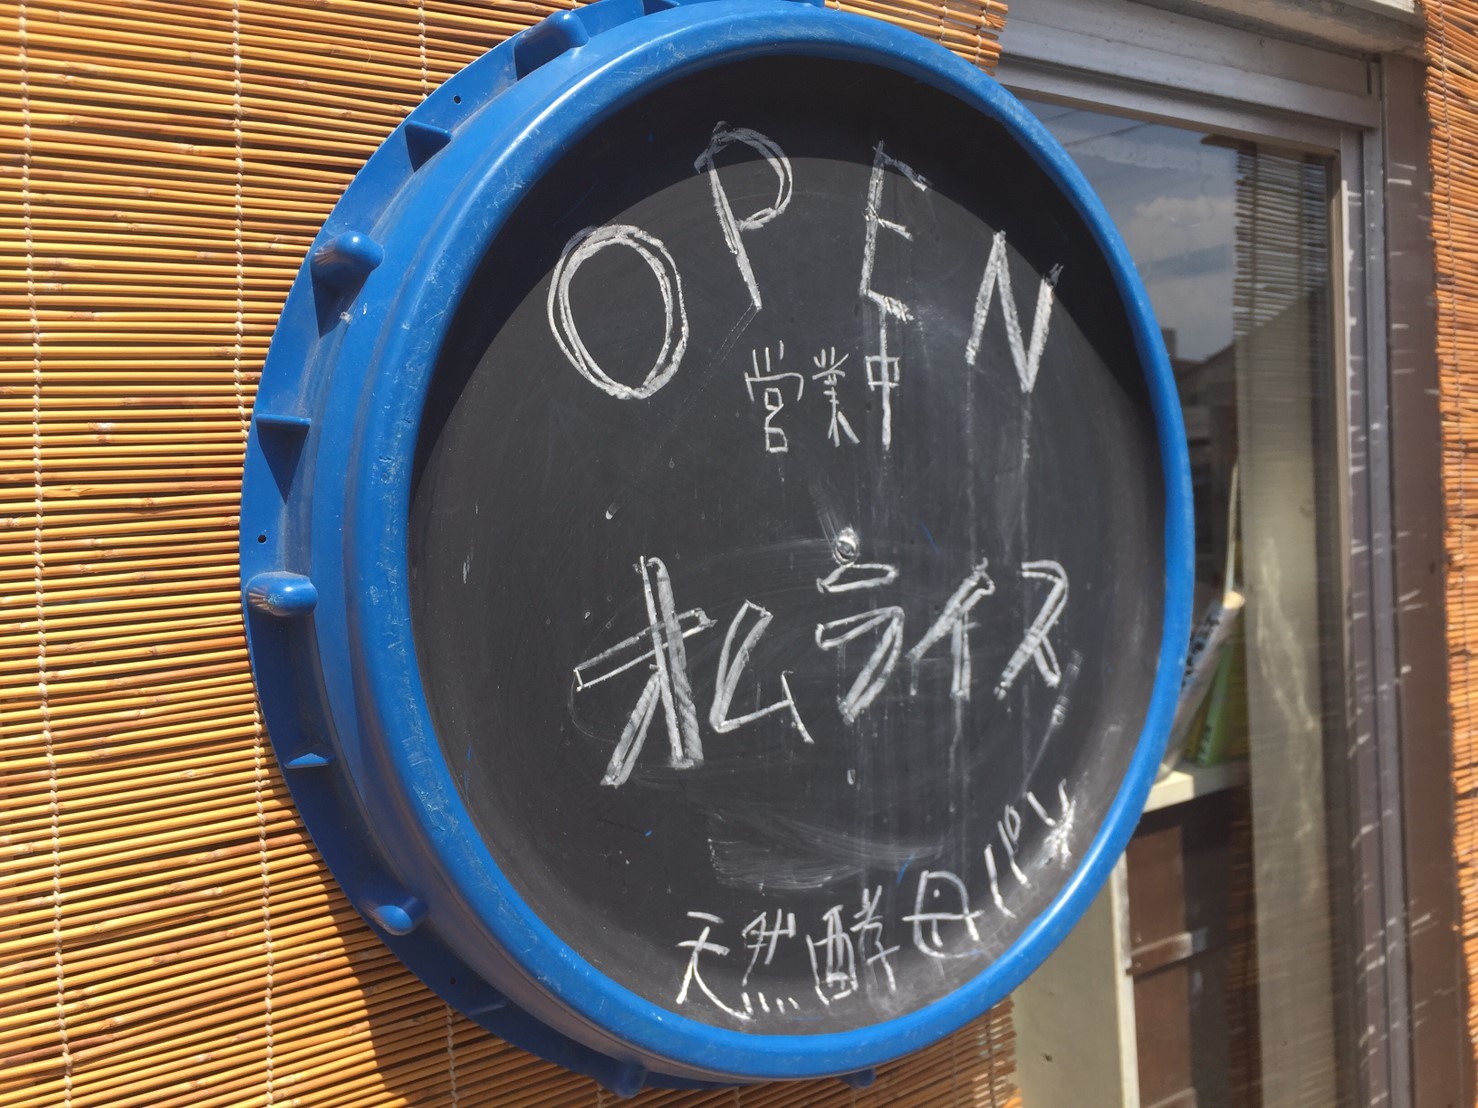 OPEN
営業中
オムライス
天然酵母パン